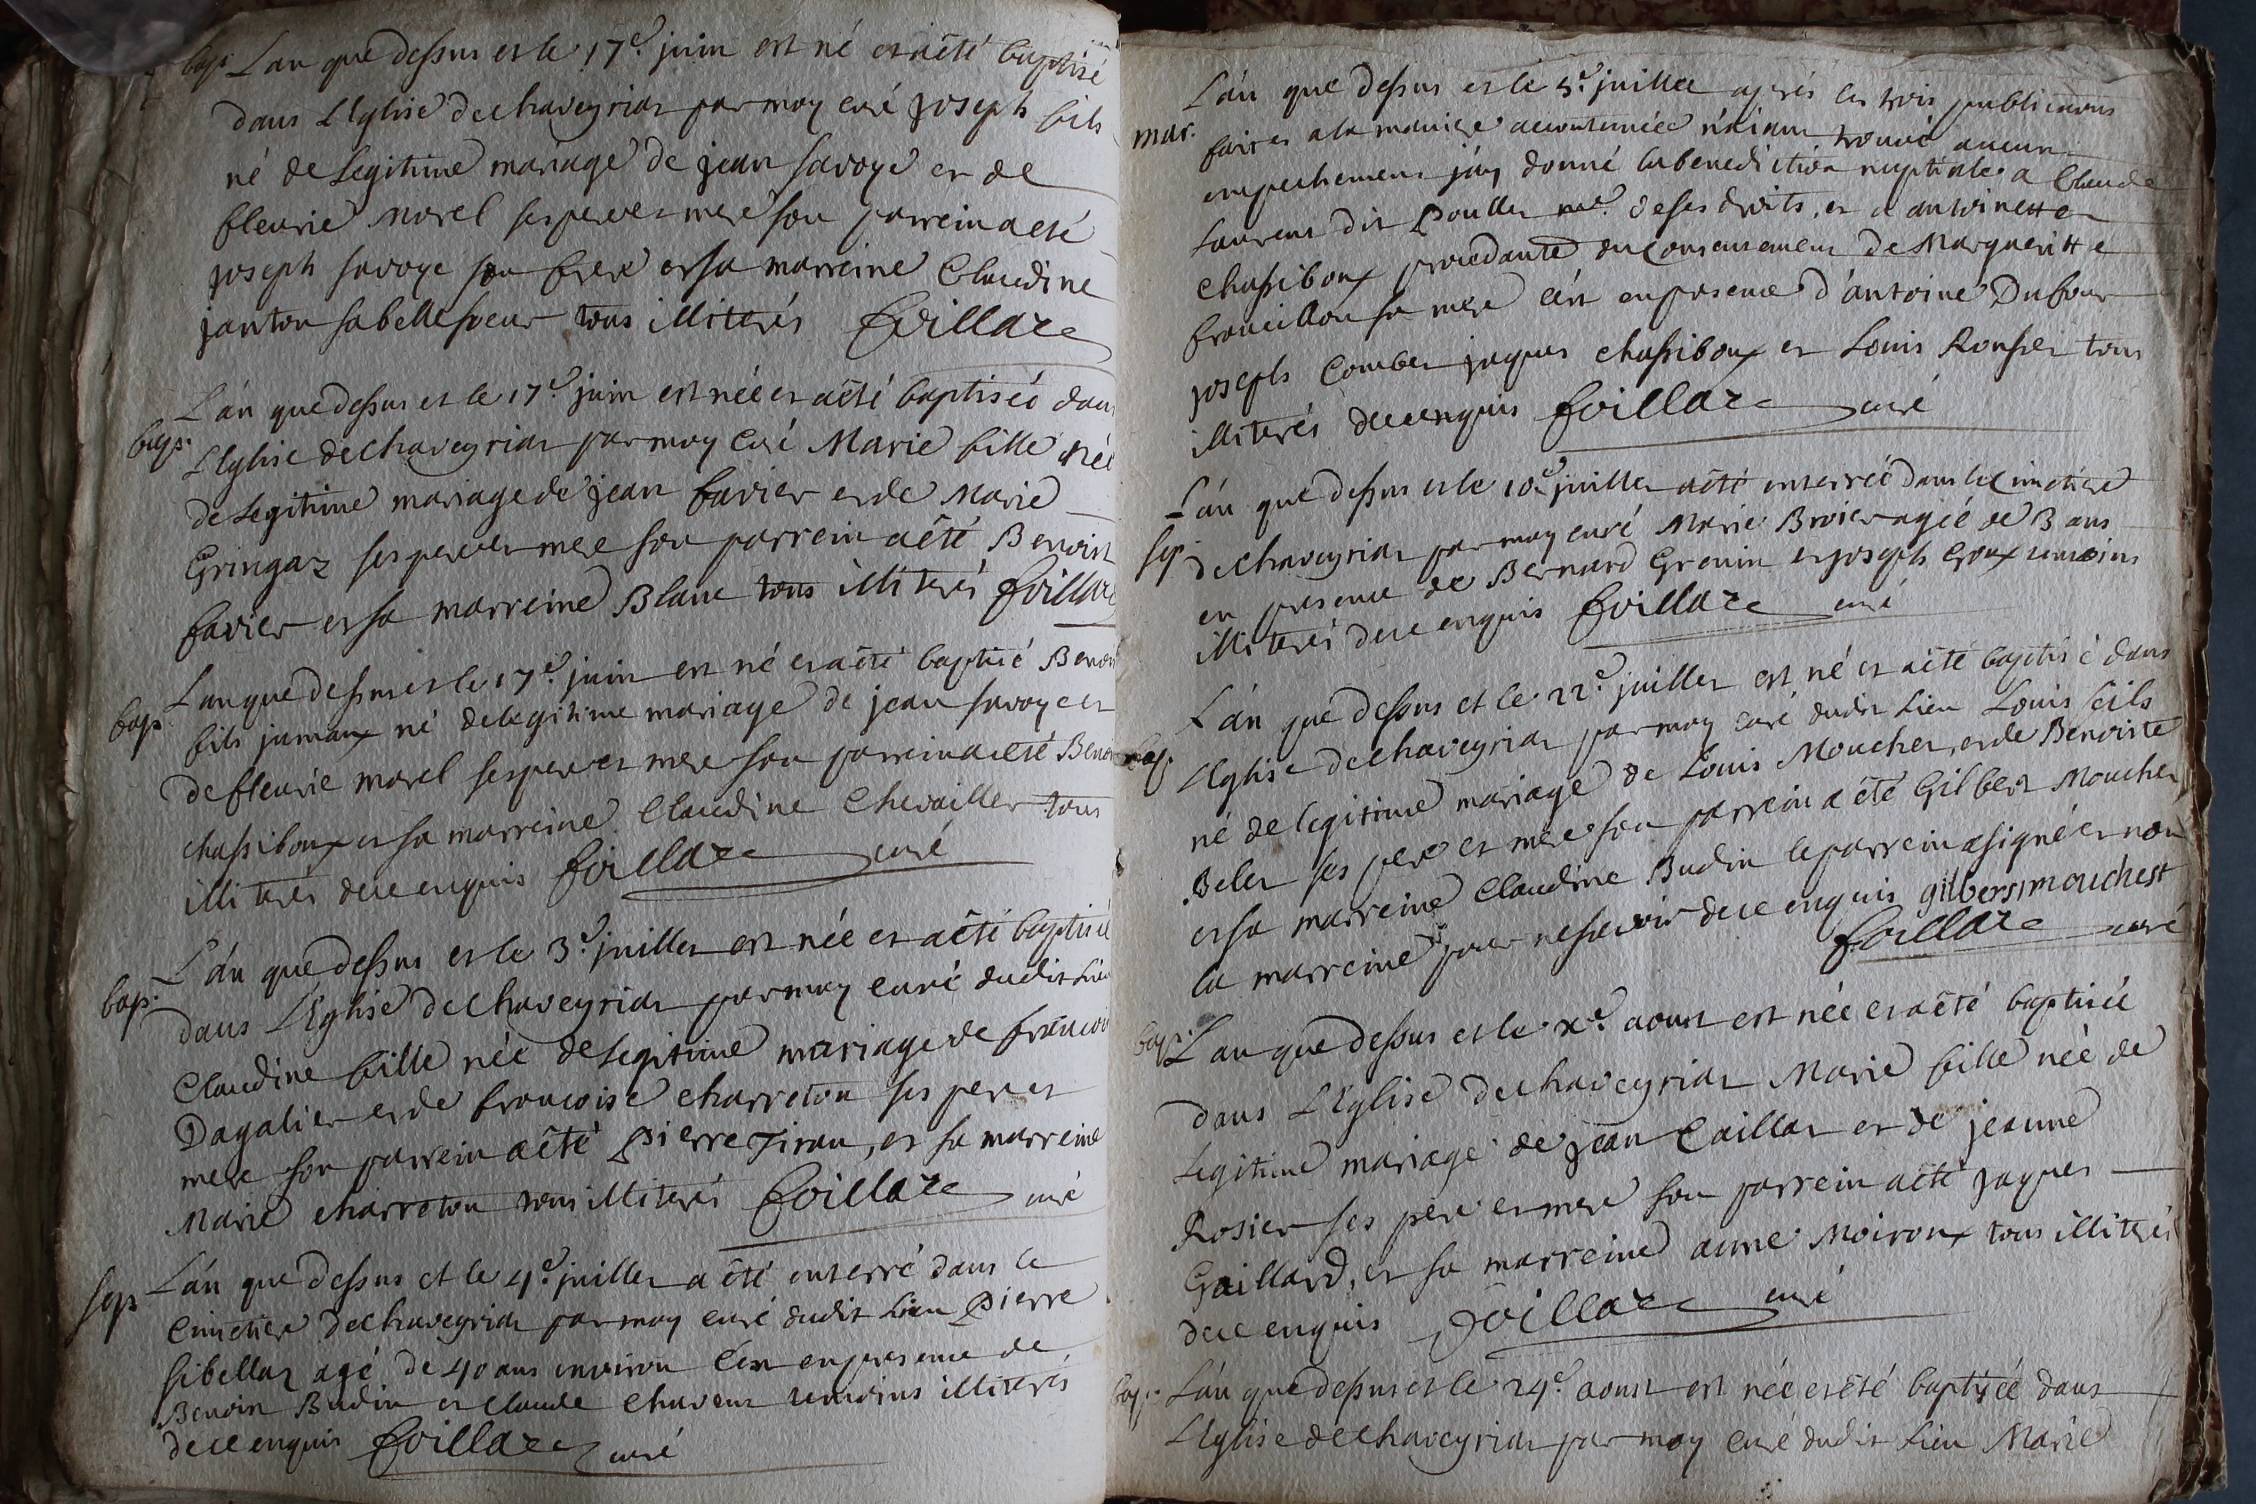 bap. L'an que dessus et le 17e. juin est né et a été baptisé
dans L'Eglise de chaveyriat par moy curé joseph fils
né de Legitime mariage de jean savoye et de
fleurie Morel ses pere et mere son parrein a eté
joseph savoye son frere et sa marreine Claudine
janton sa belle soeur tous illiterés foillaze
L'an que dessus et le 17e. juin est née et a été baptiséé dans
bap. L'Eglise de chaveyriat par moy curé Marie fille née
de Legitime mariage de jean favier et de Marie
Gringaz ses pere et mere son parrein a été Benoist
favier et sa marreine Blanc tous illiterés foillaze
L'an que dessus et le 17e. juin est né et a été baptisé Benoist
bap. fils jumaux né de legitime mariage de jean savoye et
de fleurie morel ses pere et mere son parrein a eté Benoit
chassiboux et sa marreine Claudine Chevailler tous
illiterés de ce enquis foillaze curé
L'an que dessus et le 3e. juillet est née et a été baptisée
bap. dans L'Eglise de chaveyriat par moy curé dudit Lieu
Claudine fille née de Legitime mariage de francois
Dagalier et de francoise charreton ses pere et
mere son parrein a été pierre Tiran, et sa marreine
Marie charreton tous illiterés foillaze curé
L'an que dessus et le 4e. juillet a été enterré dans le
sep. Cimetiere de chaveyriat par moy curé dudit Lieu pierre
sibellaz agé de 40 ans environ C'est en presence de
Benoit Budin et Claude Chaveut temoins illiterés
de ce enquis foillaze curé
L'an que dessus et le 5e. juillet aprés les trois publications
mar. faites a la maniere accoutumée n'aiant trouvé aucun
empechement j'ay donné la benediction nuptiale a Claude
Laurent dit Poullet me. de ses droits, et a antoinette
chassiboux procedante du consentement de Margueritte
fromillon sa mere C'est en presence d'antoine Dufour
joseph Combet jaques chassiboux et Louis Roussel tous
illiterés de ce enquis foillaze curé
L'an que dessus et le 10e. juillet a été enterrée dans le Cimetiere
sep. de chaveyriat par moy curé Marie Broier agée de 3 ans
en presence de Bernard Grenin et joseph Groux temoins
illiterés de ce enquis foillaze curé
L'an que dessus et le 22e. juillet est né et a été baptisé dans
bap. L'Eglise de chaveyriat par moy curé dudit Lieu Louis fils
né de legitime mariage de Louis Mouchet, et de Benoiste
Belet ses pere et mere son parrein a été Gilbert Mouchet
et sa marreine Claudine Budin le parrein a signé et non
la marreine pour ne scavoir de ce enquis gilbert mouchest
foillaze curé
bap. L'an que dessus et le xe. aoust est née et a été baptisée
dans L'Eglise de chaveyriat Marie fille née de
Legitime mariage de jean Caillat et de jeanne
Rosier ses pere et mere son parrein a été jaques
Gaillard, et sa marreine anne Moiroux tous illiterés
de ce enquis foillaze curé
bap. L'an que dessus et le 24e. aoust est née et été baptisée dans
L'Eglise de chaveyriat par moy curé dudit Lieu Marie